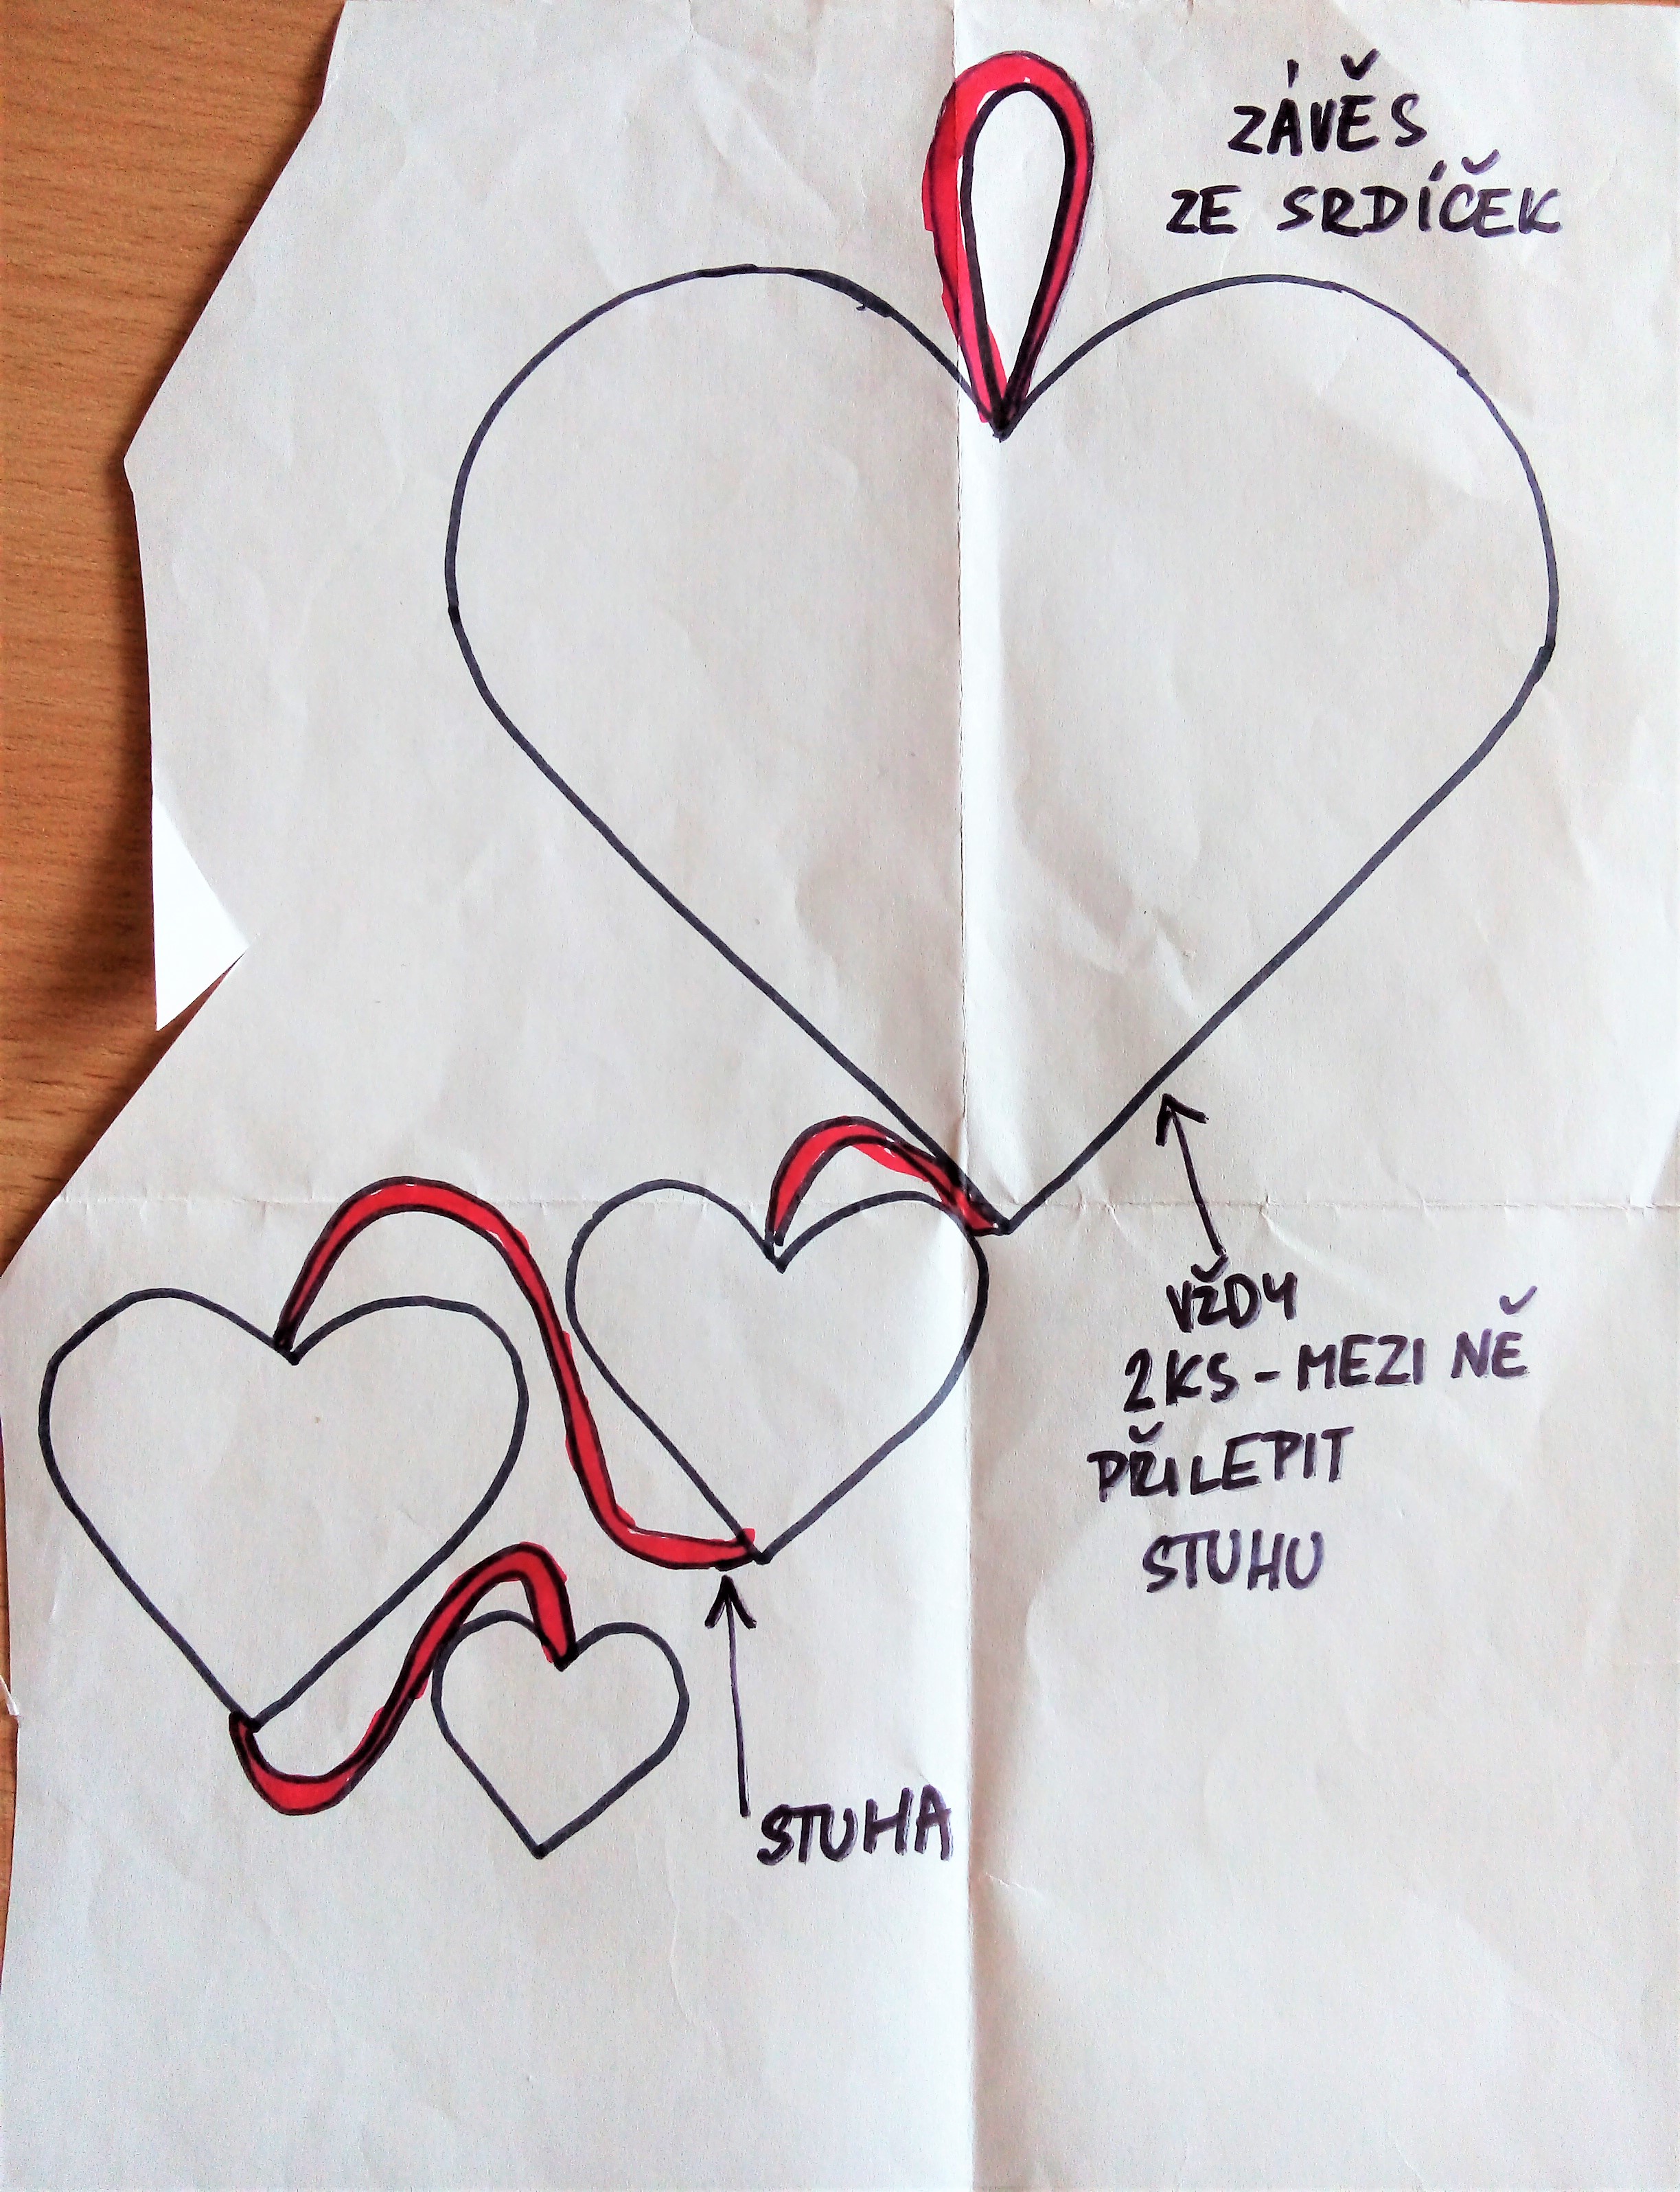 ZÁVĚS
ZE SRDÍČEK
VŽDY
2KS - MEZI NĚ
PŘILEPIT
STUHU
STUHA